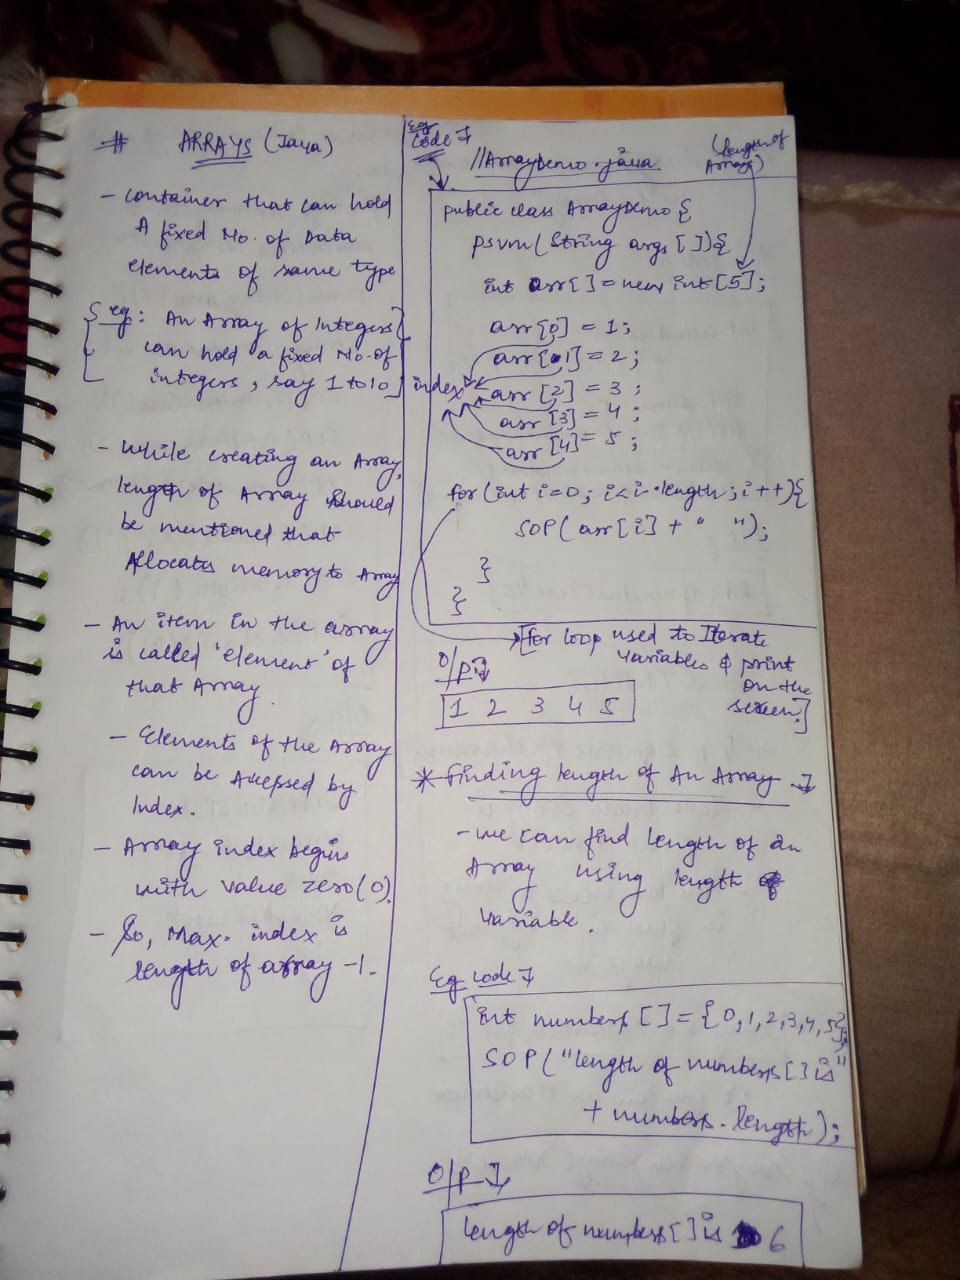 # ARRAYS (Java)
- Container that can hold
A fixed No. of Data
elements of same type
eg: An Array of Integers
can hold a fixed No. of
integers, say 1 to 10
- While creating an Array,
length of Array should
be mentioned that
Allocates memory to Array
- An item in the array
is called 'element' of
that Array.
- Elements of the Array
can be Accessed by
Index.
- Array index begins
with value zero (0).
- So, Max. index is
length of array -1.
Eg
Code
//ArrayDemo.java
(length of
Array)
public class ArrayDemo {
psvm(String args[]){
int arr[] = new int[5];
arr[0] = 1;
arr[1] = 2;
index
arr[2] = 3;
arr[3] = 4;
arr[4] = 5;
for(int i=0; i<i.length; i++){
SOP(arr[i] + " ");
}
}
[for loop used to Iterate
variables & print
on the
screen.]
O/P
1 2 3 4 5
* Finding length of An Array
- we can find length of an
Array using length
variable.
Eg code
int numbers[] = {0,1,2,3,4,5};
SOP("length of numbers[] is"
+ numbers.length);
O/P
length of numbers[] is 6